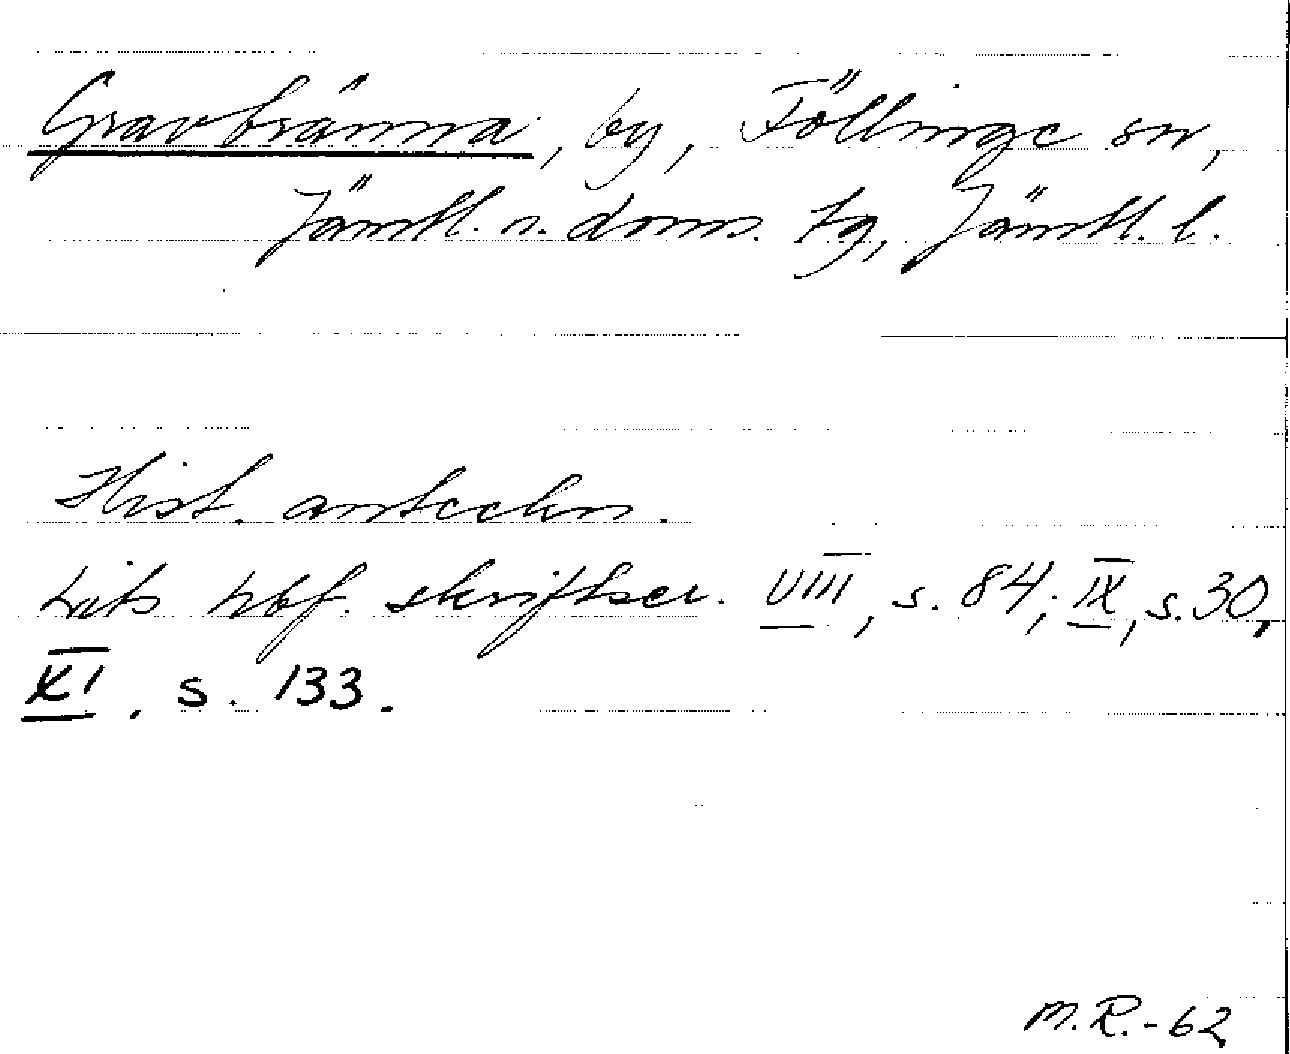 Gravbränna, by, Föllinge sn,
Jämtl. n. doms. tg, Jämtl. l.
Hist. anteckn.
Lits hbf. skriftser. VIII, s. 84; IX, s. 30,
XI, s. 133.
M.R.-62